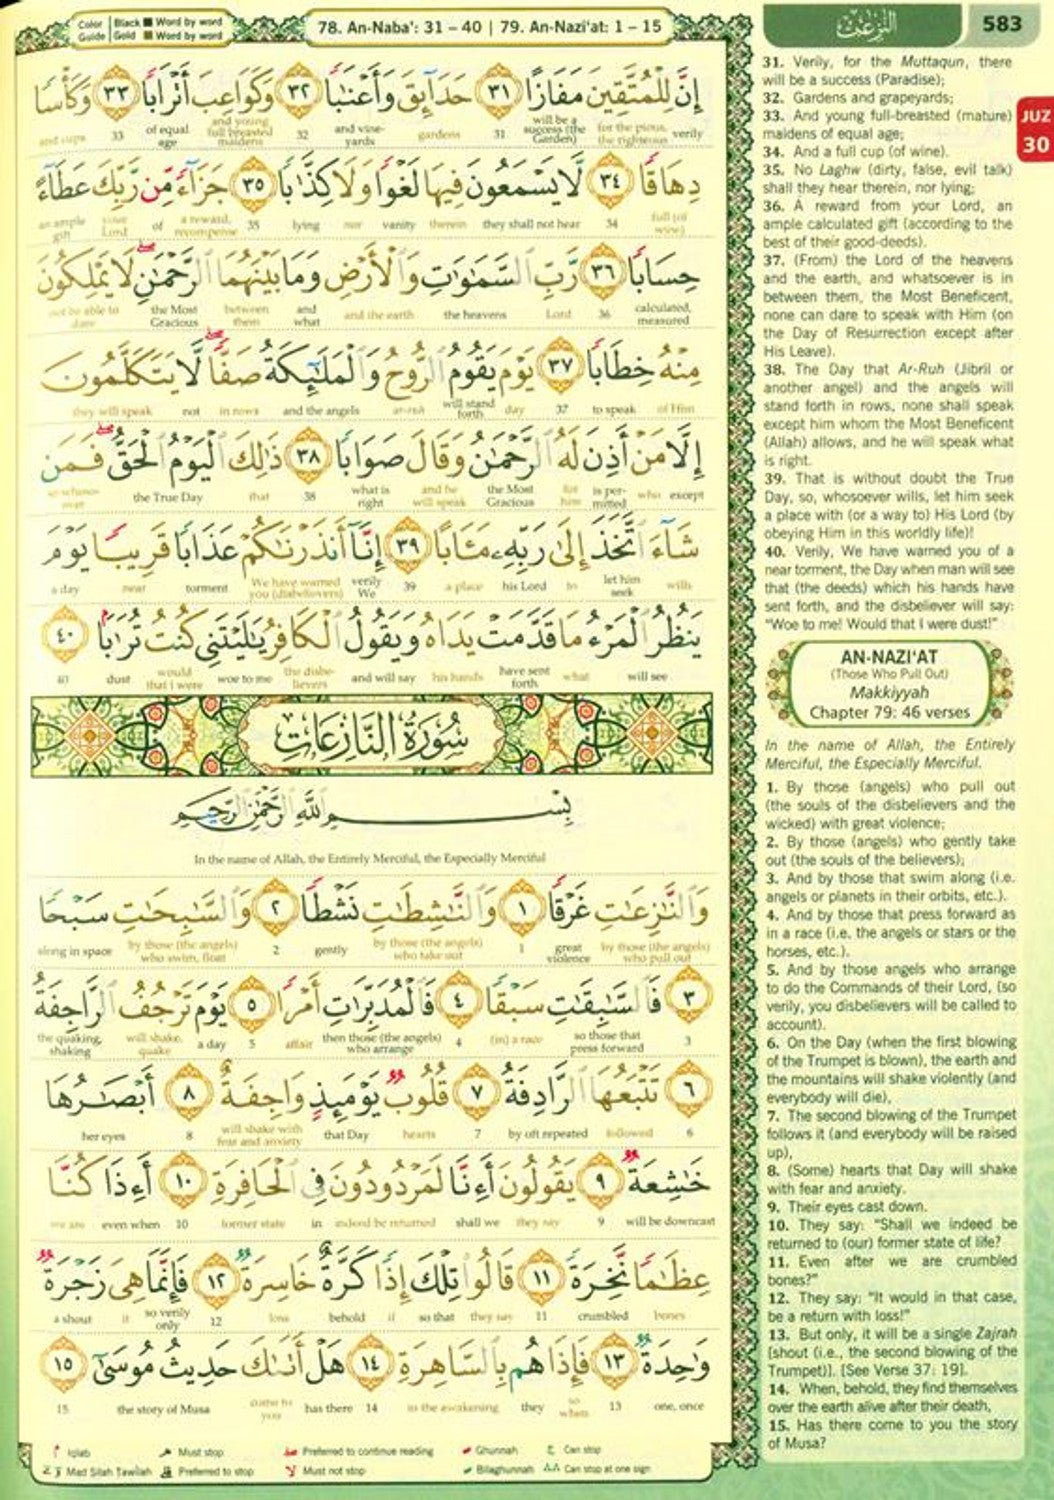 Color Guide | Black ■ Word by word
Gold ■ Word by word
78. An-Naba': 31 – 40 | 79. An-Nazi'at: 1 – 15
النّٰزعٰت
583
JUZ 30
إِنَّ لِلْمُتَّقِينَ مَفَازًا ٣١ حَدَآئِقَ وَأَعْنَٰبًا ٣٢ وَكَوَاعِبَ أَتْرَابًا ٣٣ وَكَأْسًا
verily for the pious, the righteous will be a success (the Garden) 31 gardens and vine-yards 32 and young full breasted maidens of equal age 33 and cups
دِهَاقًا ٣٤ لَّا يَسْمَعُونَ فِيهَا لَغْوًا وَلَا كِذَّٰبًا ٣٥ جَزَآءً مِّن رَّبِّكَ عَطَآءً
full (of wine) 34 they shall not hear therein vanity nor lying 35 a reward, recompense of your Lord an ample gift
حِسَابًا ٣٦ رَّبِّ ٱلسَّمَٰوَٰتِ وَٱلْأَرْضِ وَمَا بَيْنَهُمَا ٱلرَّحْمَٰنِ لَا يَمْلِكُونَ
calculated, measured 36 Lord the heavens and the earth and what between them the Most Gracious not be able to dare
مِنْهُ خِطَابًا ٣٧ يَوْمَ يَقُومُ ٱلرُّوحُ وَٱلْمَلَٰٓئِكَةُ صَفًّا لَّا يَتَكَلَّمُونَ
of Him to speak 37 day will stand forth ar-ruh and the angels in rows not they will speak
إِلَّا مَنْ أَذِنَ لَهُ ٱلرَّحْمَٰنُ وَقَالَ صَوَابًا ٣٨ ذَٰلِكَ ٱلْيَوْمُ ٱلْحَقُّ فَمَن
except who is per-mitted for him the Most Gracious and he will speak what is right 38 that the True Day so whoso-ever
شَآءَ ٱتَّخَذَ إِلَىٰ رَبِّهِۦ مَـَٔابًا ٣٩ إِنَّآ أَنذَرْنَٰكُمْ عَذَابًا قَرِيبًا يَوْمَ
wills let him seek to his Lord a place 39 verily We We have warned you (disbelievers) torment near a day
يَنظُرُ ٱلْمَرْءُ مَا قَدَّمَتْ يَدَاهُ وَيَقُولُ ٱلْكَافِرُ يَٰلَيْتَنِى كُنتُ تُرَٰبًا ٤٠
will see what have sent forth his hands and will say the disbe-lievers woe to me would that I were dust 40
سُورَةُ النَّازِعَاتِ
بِسْمِ ٱللَّهِ ٱلرَّحْمَٰنِ ٱلرَّحِيمِ
In the name of Allah, the Entirely Merciful, the Especially Merciful
وَٱلنَّٰزِعَٰتِ غَرْقًا ١ وَٱلنَّٰشِطَٰتِ نَشْطًا ٢ وَٱلسَّٰبِحَٰتِ سَبْحًا
by those (the angels) who pull out great violence 1 by those (the angels) who take out gently 2 by those (the angels) who swim, float along in space
٣ فَٱلسَّٰبِقَٰتِ سَبْقًا ٤ فَٱلْمُدَبِّرَٰتِ أَمْرًا ٥ يَوْمَ تَرْجُفُ ٱلرَّاجِفَةُ
3 so those that press forward (in) a race 4 then those (the angels) who arrange affair 5 a day will shake, quake the quaking, shaking
٦ تَتْبَعُهَا ٱلرَّادِفَةُ ٧ قُلُوبٌ يَوْمَئِذٍ وَاجِفَةٌ ٨ أَبْصَٰرُهَا
6 followed by oft repeated 7 hearts that Day will shake with fear and anxiety 8 her eyes
خَٰشِعَةٌ ٩ يَقُولُونَ أَءِنَّا لَمَرْدُودُونَ فِى ٱلْحَافِرَةِ ١٠ أَءِذَا كُنَّا
will be downcast 9 they say shall we indeed be returned in former state 10 even when we are
عِظَٰمًا نَّخِرَةً ١١ قَالُوا۟ تِلْكَ إِذًا كَرَّةٌ خَاسِرَةٌ ١٢ فَإِنَّمَا هِىَ زَجْرَةٌ
bones crumbled 11 they say so that if behold loss 12 so verily only it a shout
وَٰحِدَةٌ ١٣ فَإِذَا هُم بِٱلسَّاهِرَةِ ١٤ هَلْ أَتَىٰكَ حَدِيثُ مُوسَىٰٓ ١٥
one, once 13 so when they in the awakening 14 has there come to you the story of Musa 15
Iqlab Must stop Preferred to continue reading Ghunnah Can stop
Mad Silah Tawilah Preferred to stop Must not stop Bilaghunnah Can stop at one sign
31. Verily, for the Muttaqun, there
will be a success (Paradise);
32. Gardens and grapeyards;
33. And young full-breasted (mature)
maidens of equal age;
34. And a full cup (of wine).
35. No Laghw (dirty, false, evil talk)
shall they hear therein, nor lying;
36. A reward from your Lord, an
ample calculated gift (according to the
best of their good-deeds).
37. (From) the Lord of the heavens
and the earth, and whatsoever is in
between them, the Most Beneficent,
none can dare to speak with Him (on
the Day of Resurrection except after
His Leave).
38. The Day that Ar-Ruh (Jibril or
another angel) and the angels will
stand forth in rows, none shall speak
except him whom the Most Beneficent
(Allah) allows, and he will speak what
is right.
39. That is without doubt the True
Day, so, whosoever wills, let him seek
a place with (or a way to) His Lord (by
obeying Him in this worldly life)!
40. Verily, We have warned you of a
near torment, the Day when man will see
that (the deeds) which his hands have
sent forth, and the disbeliever will say:
"Woe to me! Would that I were dust!"
AN-NAZI'AT
(Those Who Pull Out)
Makkiyyah
Chapter 79: 46 verses
In the name of Allah, the Entirely
Merciful, the Especially Merciful.
1. By those (angels) who pull out
(the souls of the disbelievers and the
wicked) with great violence;
2. By those (angels) who gently take
out (the souls of the believers);
3. And by those that swim along (i.e.
angels or planets in their orbits, etc.).
4. And by those that press forward as
in a race (i.e. the angels or stars or the
horses, etc.).
5. And by those angels who arrange
to do the Commands of their Lord, (so
verily, you disbelievers will be called to
account).
6. On the Day (when the first blowing
of the Trumpet is blown), the earth and
the mountains will shake violently (and
everybody will die),
7. The second blowing of the Trumpet
follows it (and everybody will be raised
up),
8. (Some) hearts that Day will shake
with fear and anxiety.
9. Their eyes cast down.
10. They say: "Shall we indeed be
returned to (our) former state of life?
11. Even after we are crumbled
bones?"
12. They say: "It would in that case,
be a return with loss!"
13. But only, it will be a single Zajrah
[shout (i.e., the second blowing of the
Trumpet)]. [See Verse 37: 19].
14. When, behold, they find themselves
over the earth alive after their death,
15. Has there come to you the story
of Musa?